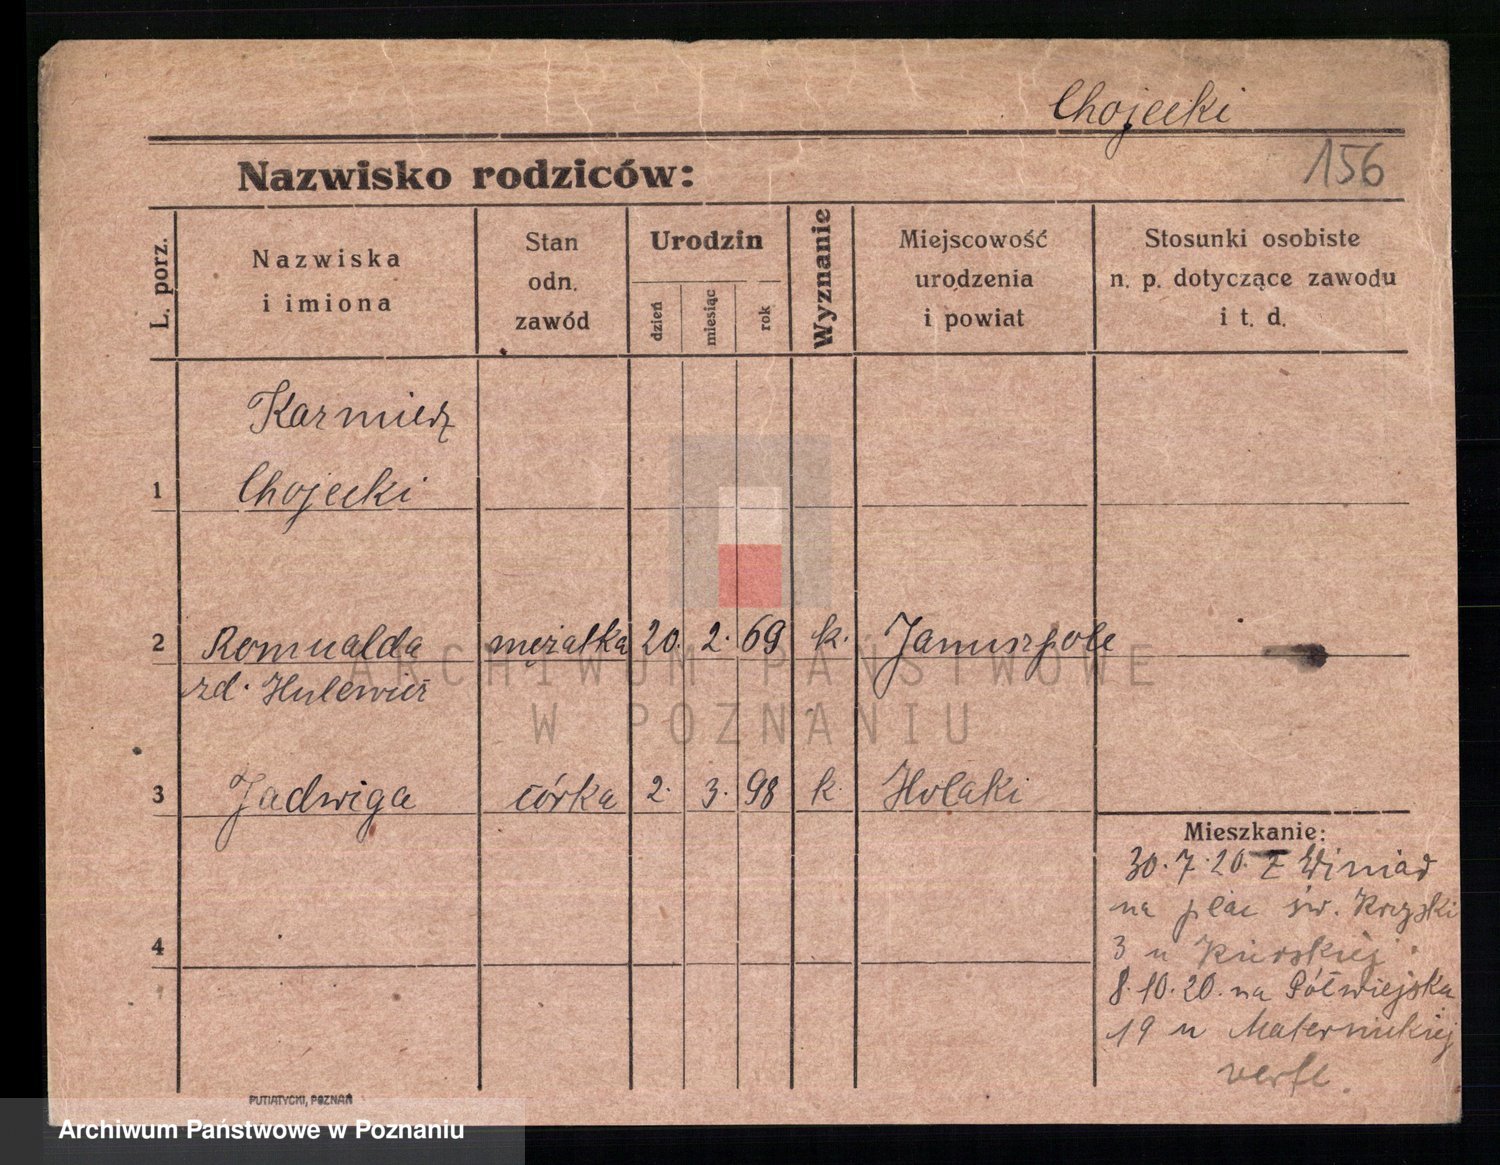 Chojecki
156
Nazwisko rodziców:
L. porz.
Nazwiska
i imiona
Stan
odn.
zawód
Urodzin
dzień
miesiąc
rok
Wyznanie
Miejscowość
urodzenia
i powiat
Stosunki osobiste
n. p. dotyczące zawodu
i t. d.
Kazmierz
1 Chojecki
2 Romualda mężatka 20. 2. 69 k. Januszpole
zd. Hulewicz
ARCHIWUM PAŃSTWOWE
W POZNANIU
3 Jadwiga córka 2. 3. 98 k. Holaki
Mieszkanie:
30. 7. 20. z Winiad
na plac św. Krzyski
3 u
4
8. 10. 20. na Półwiejska
19 u
PUTIATYCKI, POZNAŃ
Archiwum Państwowe w Poznaniu